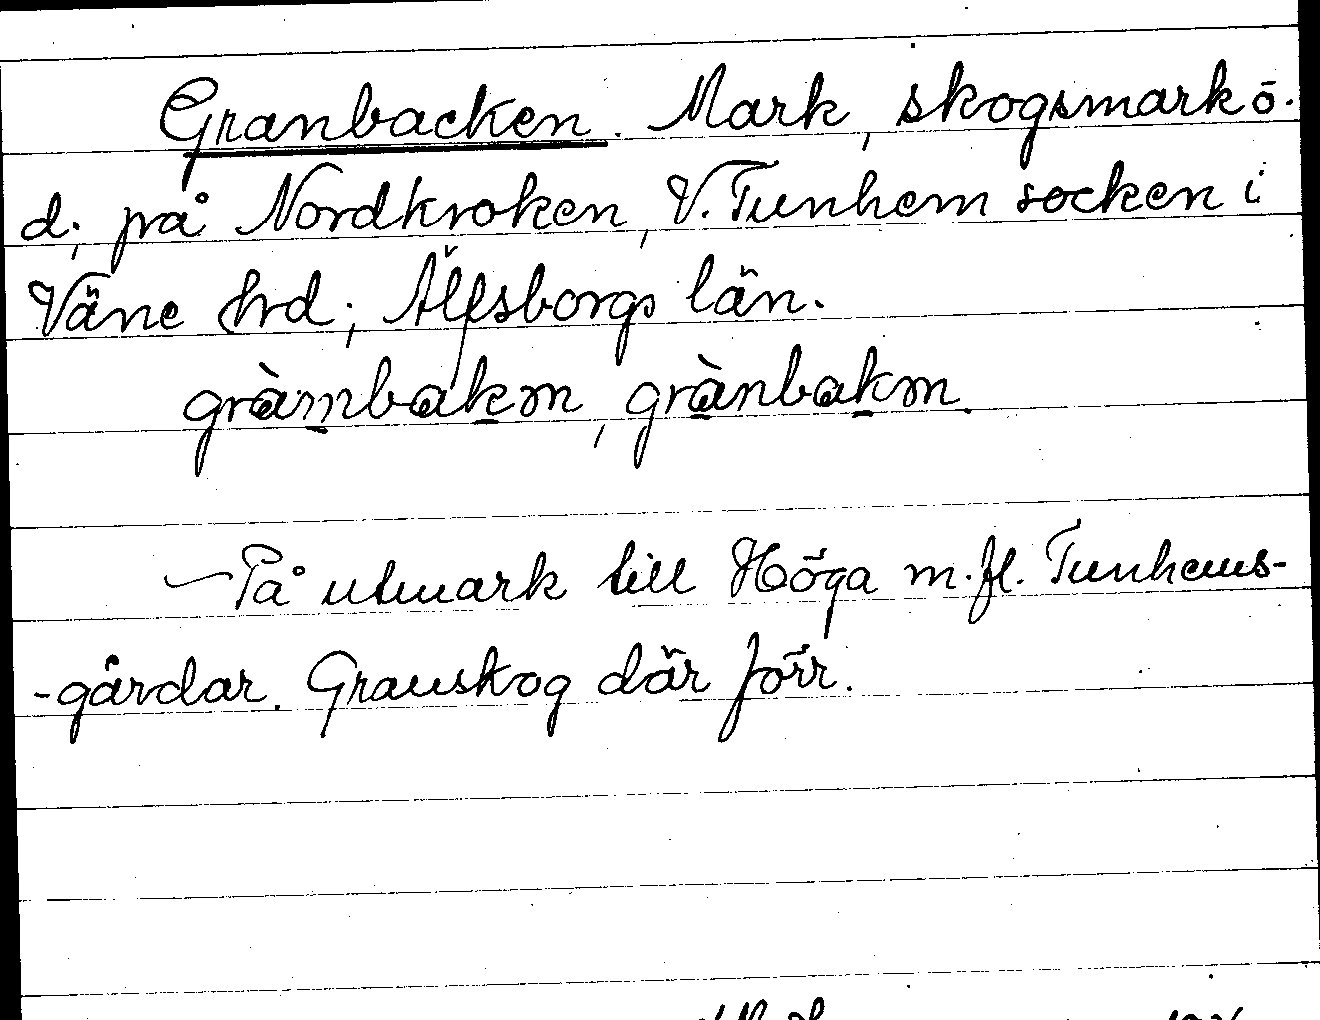 Granbacken. Mark, skogsmark ö.
d., på Nordkroken, V. Tunhem socken i
Väne hrd; Älfsborgs län.
gràmbakm, grànbakm.
— På utmark till Höga m. fl. Tunhems-
-gårdar. Granskog där förr.